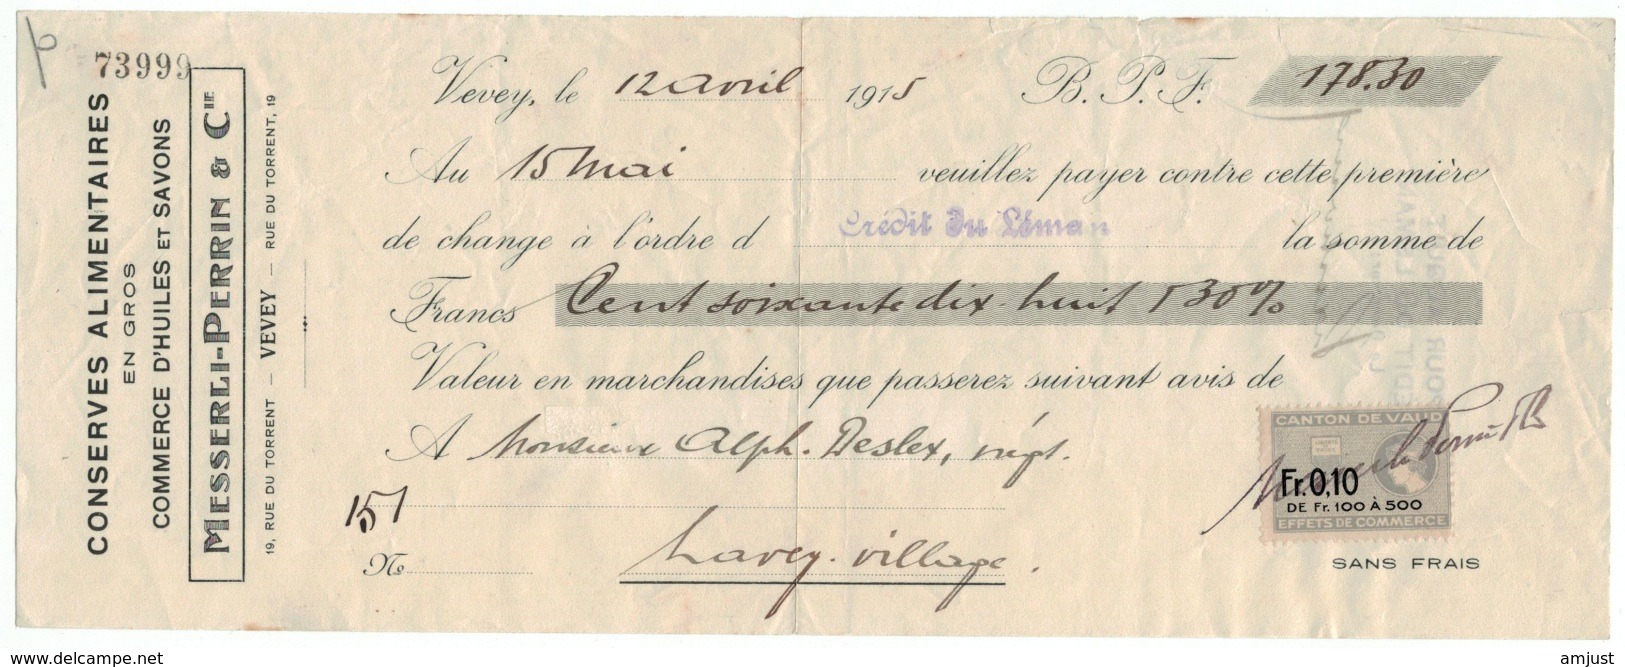 73999
CONSERVES ALIMENTAIRES
EN GROS
COMMERCE D'HUILES ET SAVONS
MESSERLI-PERRIN & CIE
19, RUE DU TORRENT – VEVEY – RUE DU TORRENT, 19
Vevey, le 12 avril 1915 B. P. F. 178.30
Au 15 Mai veuillez payer contre cette première
de change à l'ordre d Crédit du Léman la somme de
Francs Cent soixante dix-huit & 30 %
Valeur en marchandises que passerez suivant avis de
A Monsieur Alph. Deslex, négt.
CANTON DE VAUD
Fr. 0,10
DE Fr. 100 À 500
EFFETS DE COMMERCE
151
No
Lavey-village.
SANS FRAIS
www.delcampe.net
amjust